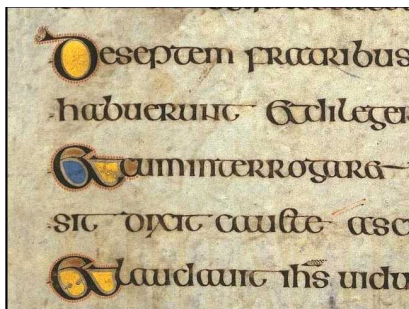 Deseptem fratribus
habuerunt
Etcuminterrogare
sit dixit cauete asc
Etlaudauit ihs uidu